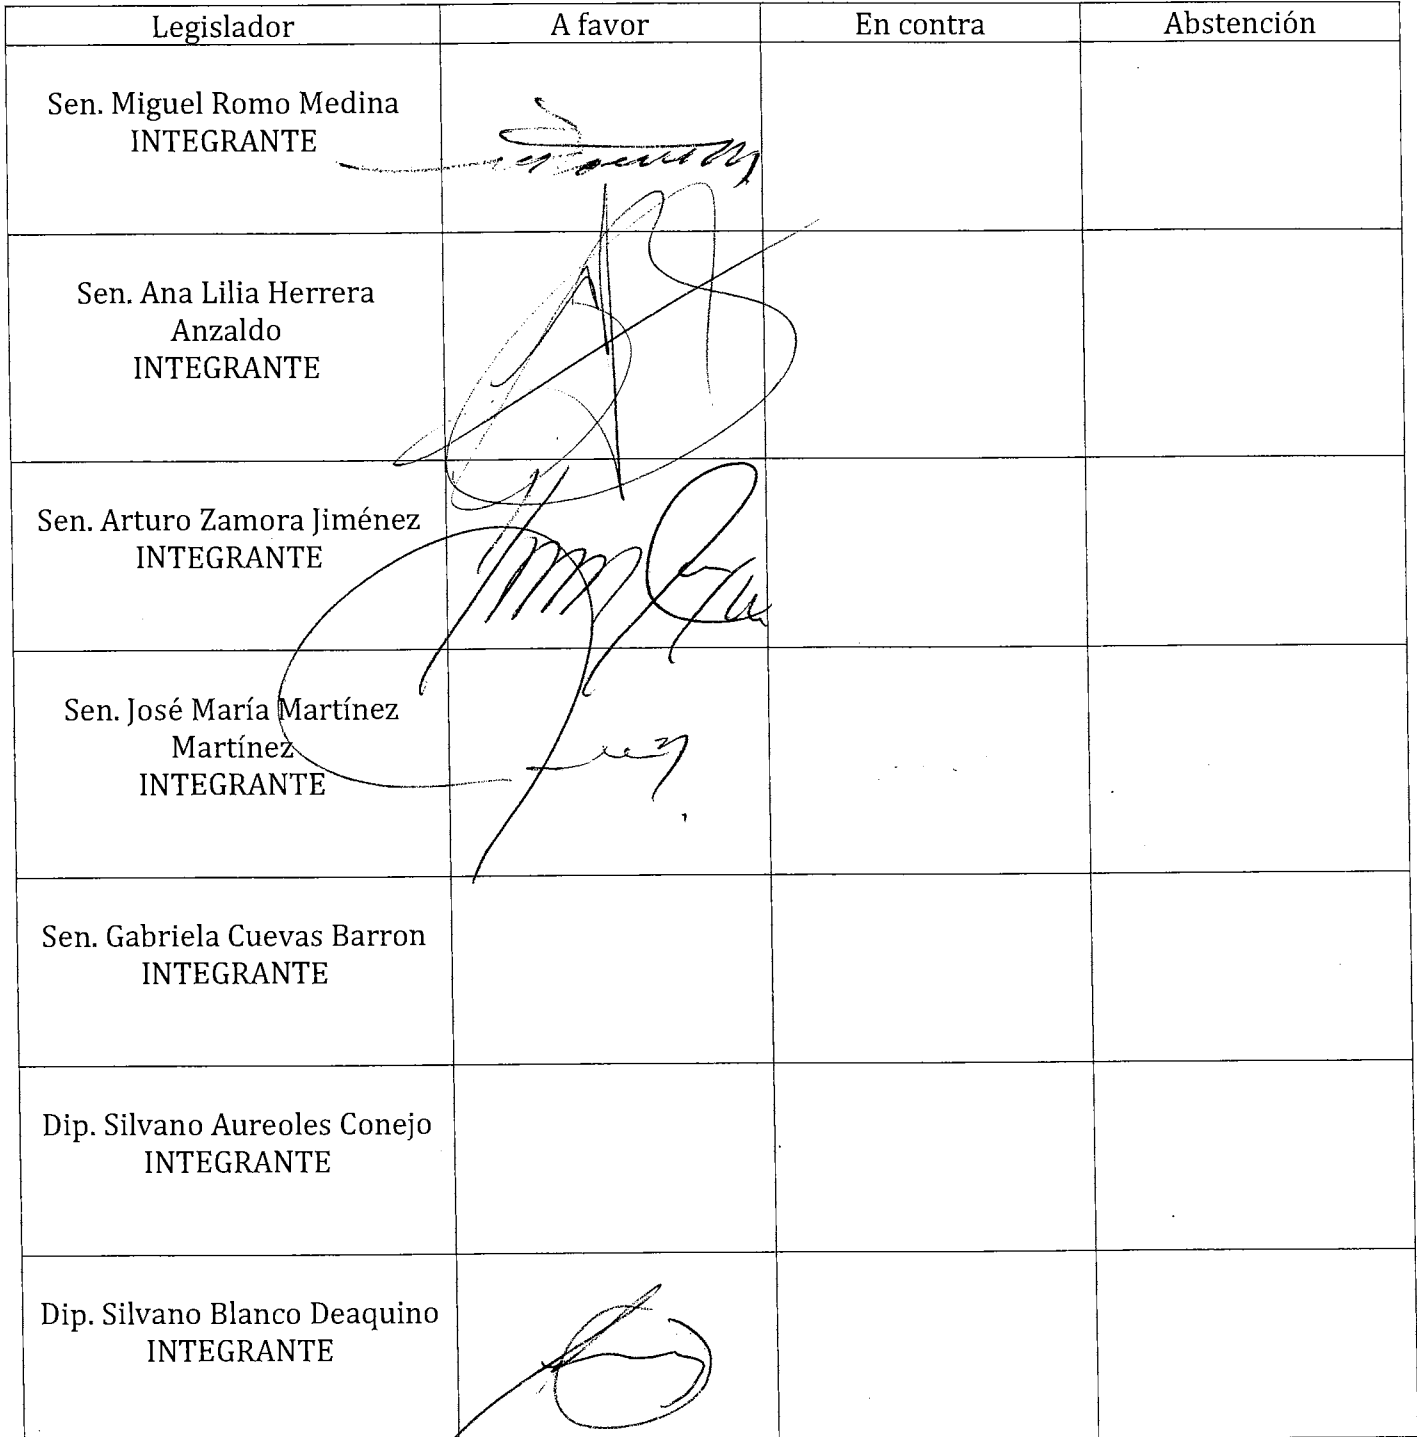 Legislador A favor En contra Abstención
Sen. Miguel Romo Medina
INTEGRANTE
Sen. Ana Lilia Herrera
Anzaldo
INTEGRANTE
Sen. Arturo Zamora Jiménez
INTEGRANTE
Sen. José María Martínez
Martínez
INTEGRANTE
Sen. Gabriela Cuevas Barron
INTEGRANTE
Dip. Silvano Aureoles Conejo
INTEGRANTE
Dip. Silvano Blanco Deaquino
INTEGRANTE